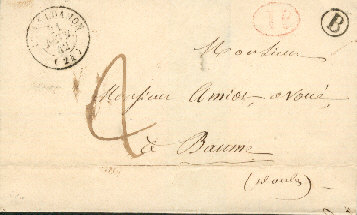 1 C
B
(24)
4
Monsieur
Monsieur Amiot avoué
à Baume
(Doubs)